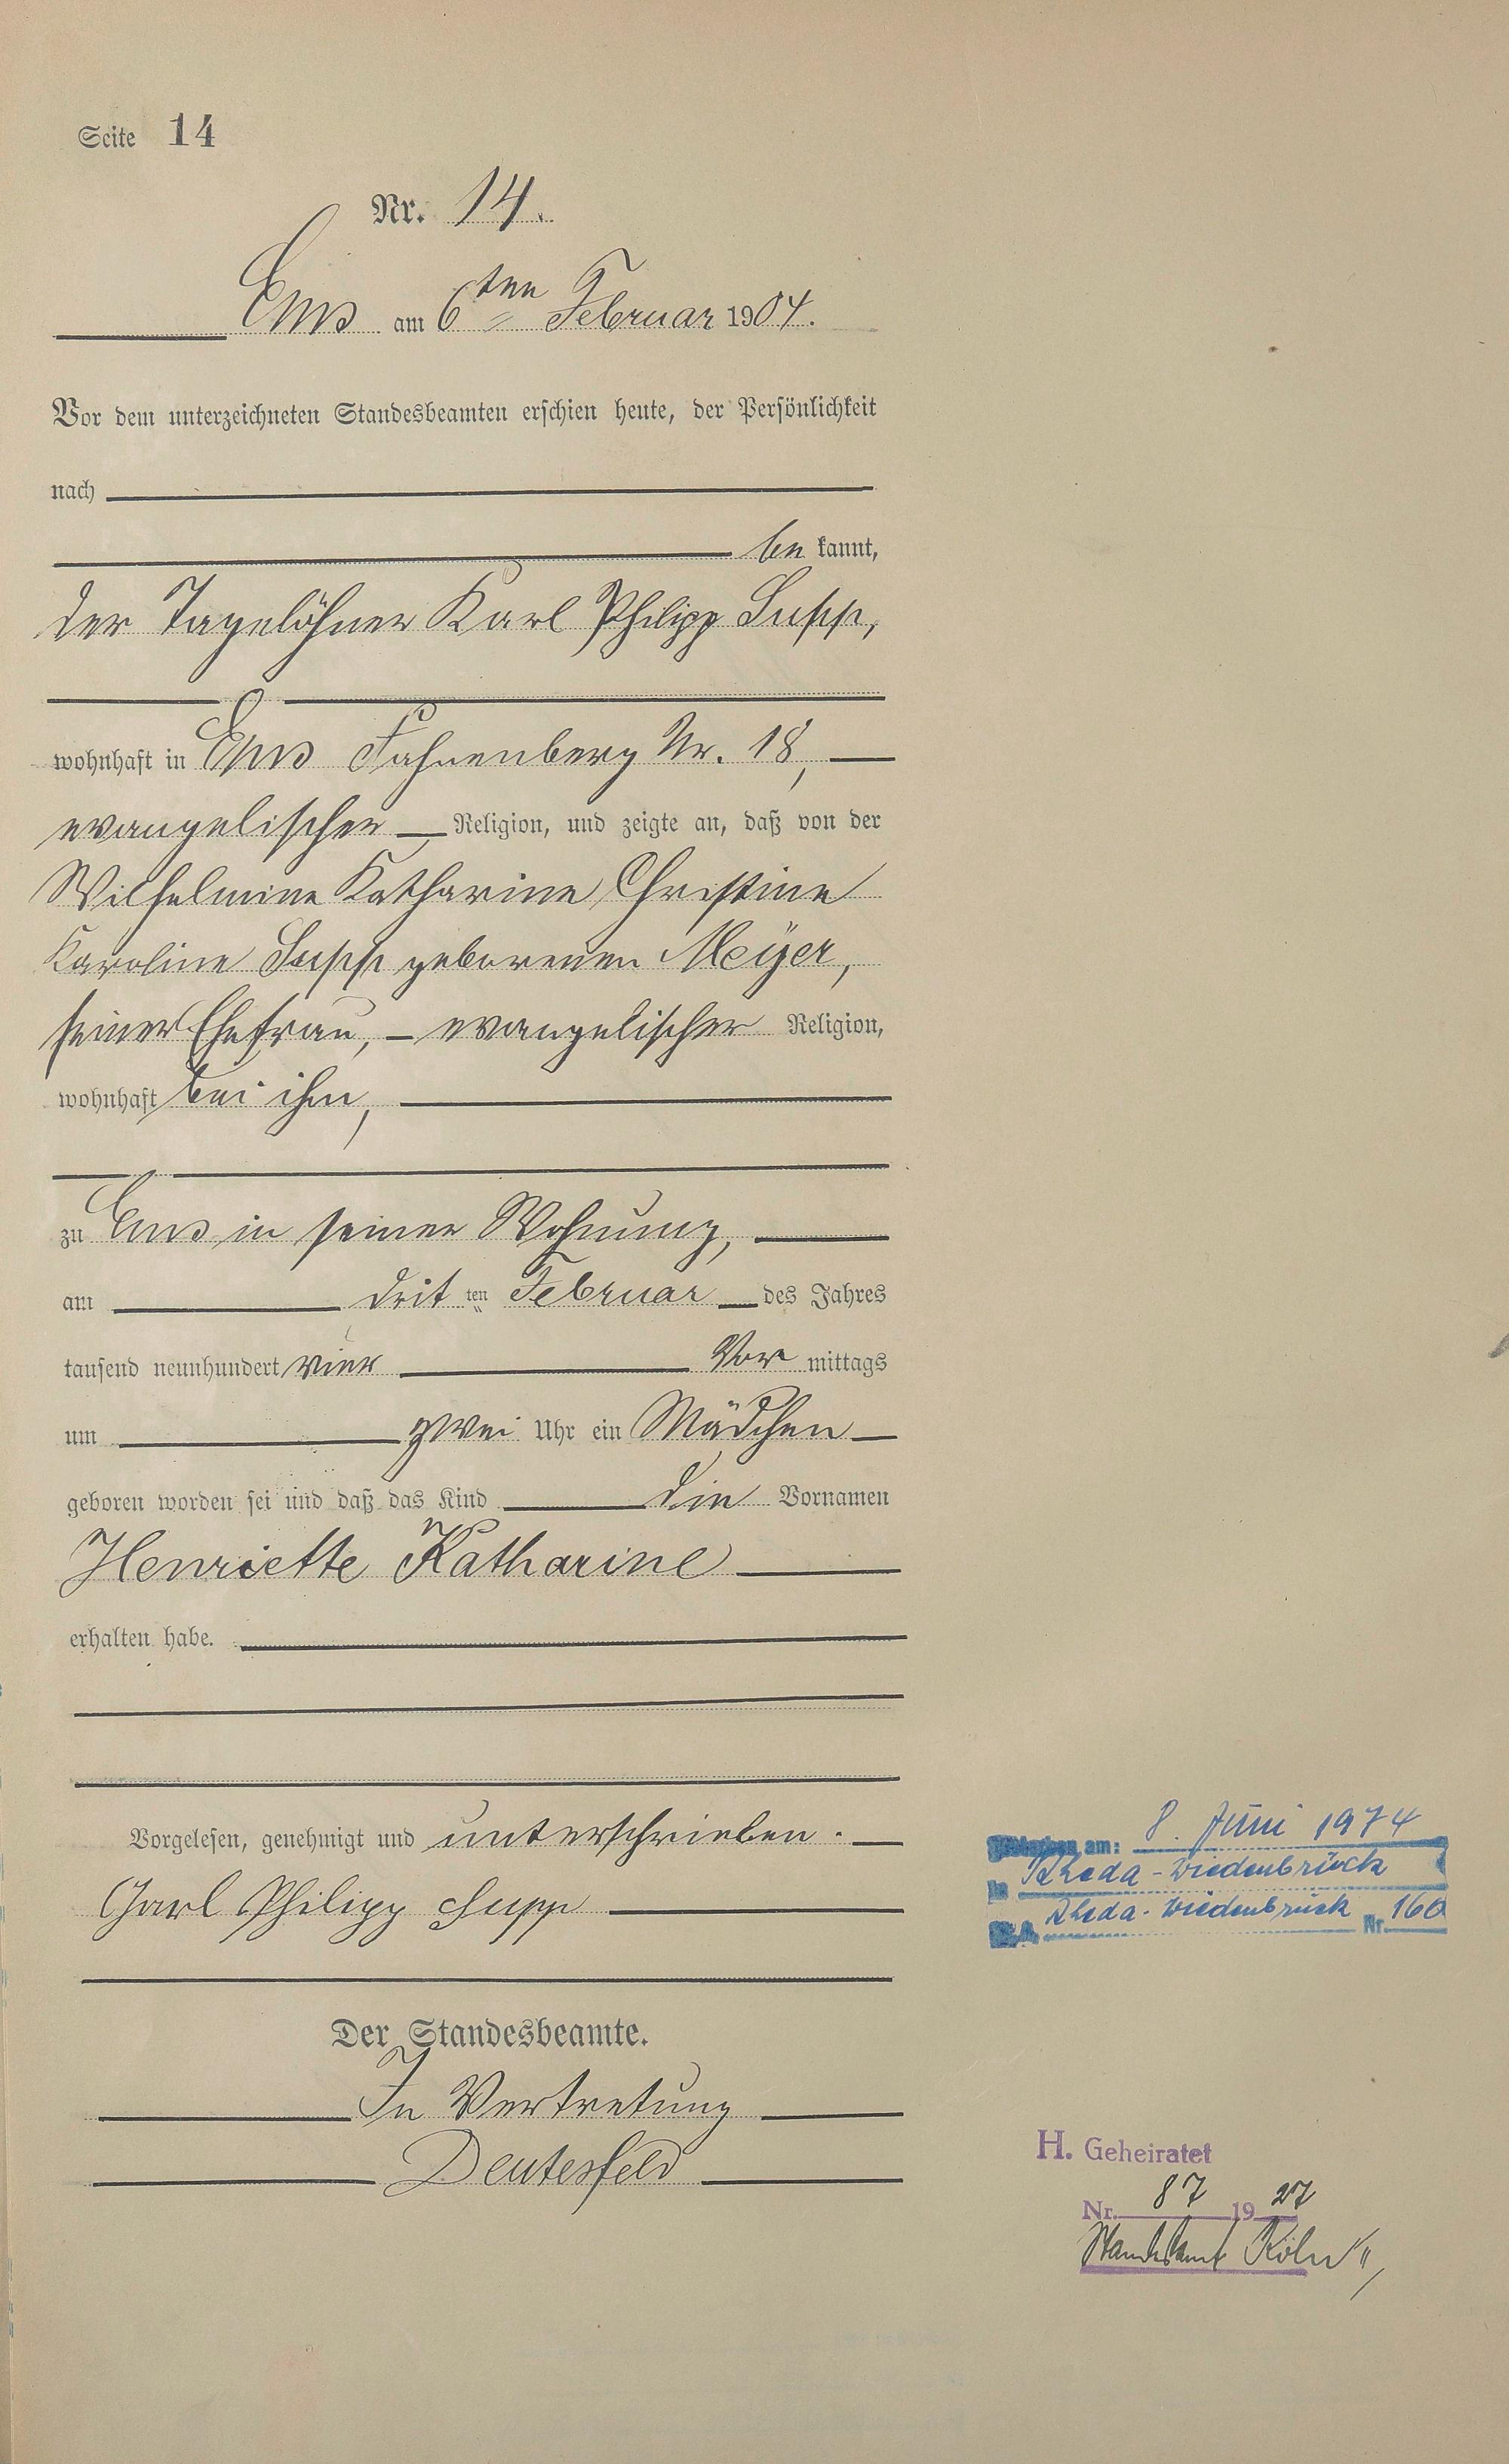 Seite 14
Nr. 14.
Ems am 6ten Februar 1904.
Vor dem unterzeichneten Standesbeamten erschien heute, der Persönlichkeit
nach
be kannt,
der Tagelöhner Karl Philipp Supp,
wohnhaft in Ems Fahnenberg Nr. 18,
evangelischer Religion, und zeigte an, daß von der
Wilhelmine Katharine Christine
Karoline Supp geborenen Meÿer,
seiner Ehefrau, evangelischer Religion,
wohnhaft bei ihm,
zu Ems in seiner Wohnung,
am drit ten Februar des Jahres
tausend neunhundert vier Vor mittags
um zwei Uhr ein Mädchen
geboren worden sei und daß das Kind die Vornamen
Henriette Katharine
erhalten habe.
Vorgelesen, genehmigt und unterschrieben.
Carl Philipp Supp
Der Standesbeamte.
In Vertretung
Deutesfeld
am: 8. Juni 1974
in Rheda-Wiedenbrück
Rheda-Wiedenbrück Nr. 160
H. Geheiratet
Nr. 87 1927
Standesamt Köln